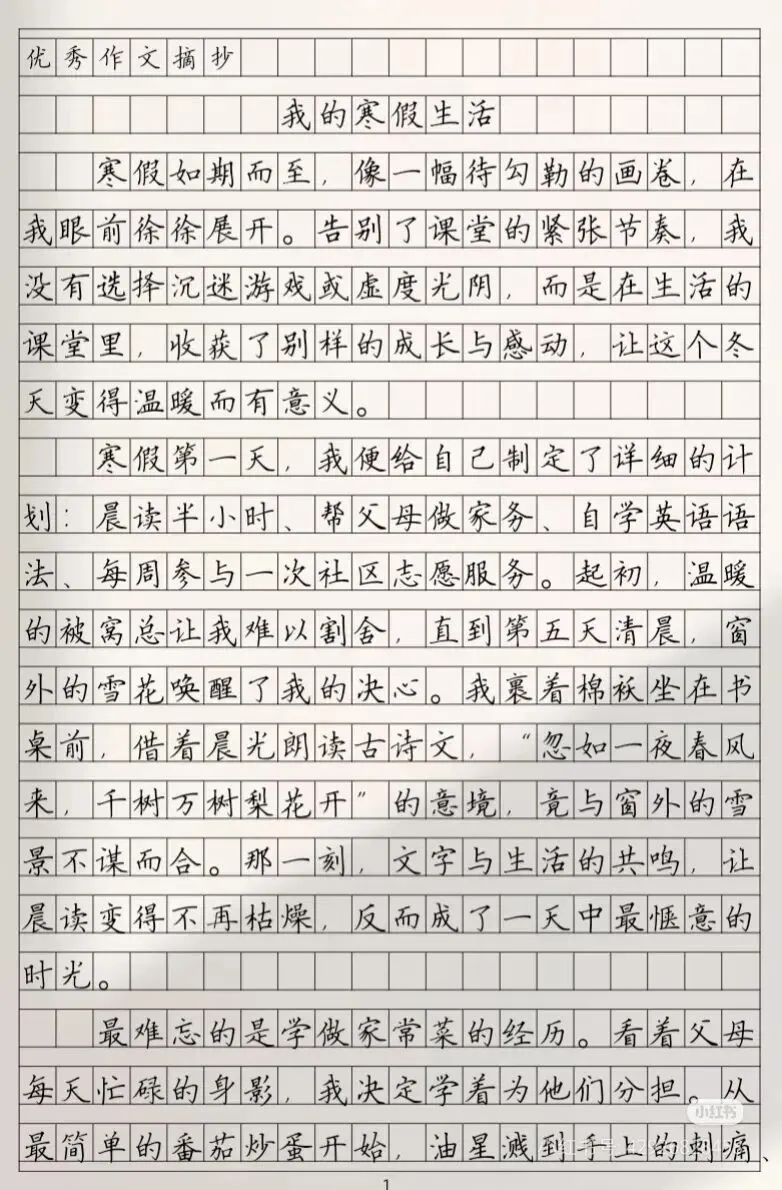 优秀作文摘抄
我的寒假生活
寒假如期而至，像一幅待勾勒的画卷，在
我眼前徐徐展开。告别了课堂的紧张节奏，我
没有选择沉迷游戏或虚度光阴，而是在生活的
课堂里，收获了别样的成长与感动，让这个冬
天变得温暖而有意义。
寒假第一天，我便给自己制定了详细的计
划：晨读半小时、帮父母做家务、自学英语语
法、每周参与一次社区志愿服务。起初，温暖
的被窝总让我难以割舍，直到第五天清晨，窗
外的雪花唤醒了我的决心。我裹着棉袄坐在书
桌前，借着晨光朗读古诗文，“忽如一夜春风
来，千树万树梨花开”的意境，竟与窗外的雪
景不谋而合。那一刻，文字与生活的共鸣，让
晨读变得不再枯燥，反而成了一天中最惬意的
时光。
最难忘的是学做家常菜的经历。看着父母
每天忙碌的身影，我决定学着为他们分担。从
最简单的番茄炒蛋开始，油星溅到手上的刺痛、
小红书
1